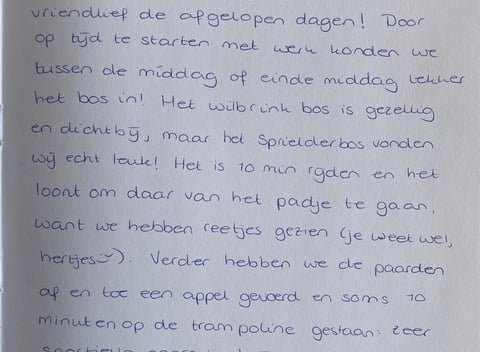 vriendlief de afgelopen dagen! Door
op tijd te starten met werk konden we
tussen de middag of einde middag lekker
het bos in! Het wilbrink bos is gezellig
en dichtbij, maar het Sprielderbos vonden
wij echt leuk! Het is 10 min rijden en het
loont om daar van het padje te gaan,
want we hebben reetjes gezien (je weet wel,
hertjes :)). Verder hebben we de paarden
af en toe een appel gevoerd en soms 10
minuten op de trampoline gestaan: zeer